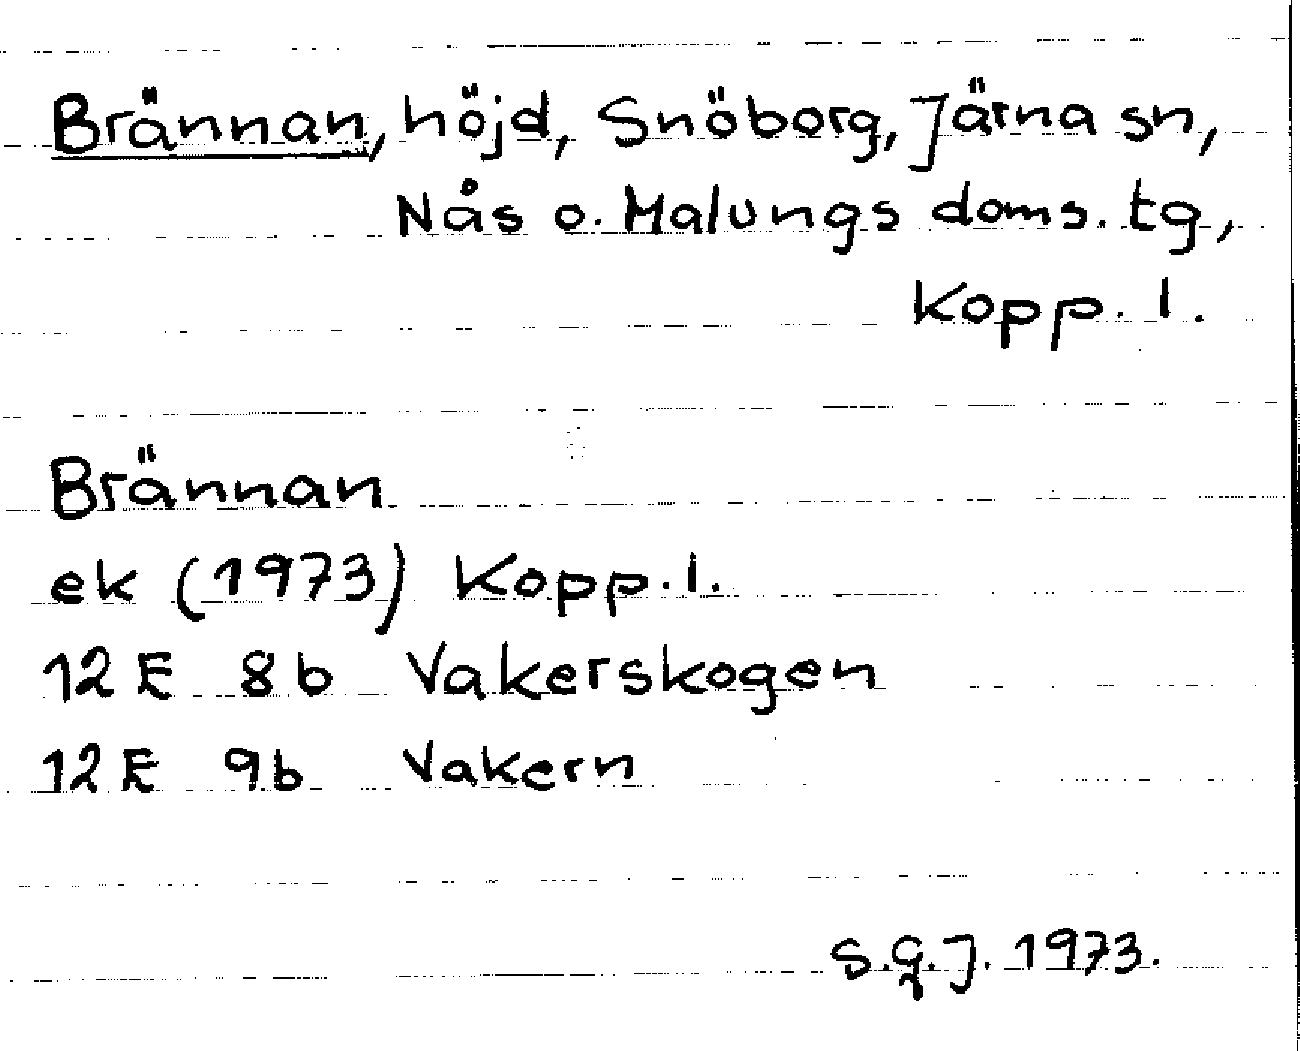 Brännan, höjd, Snöborg, Järna sn,
Nås o. Malungs doms. tg,
Kopp. l.
Brännan
ek (1973) Kopp. l.
12 E 8b Vakerskogen
12 E 9b Vakern
S.G.J. 1973.